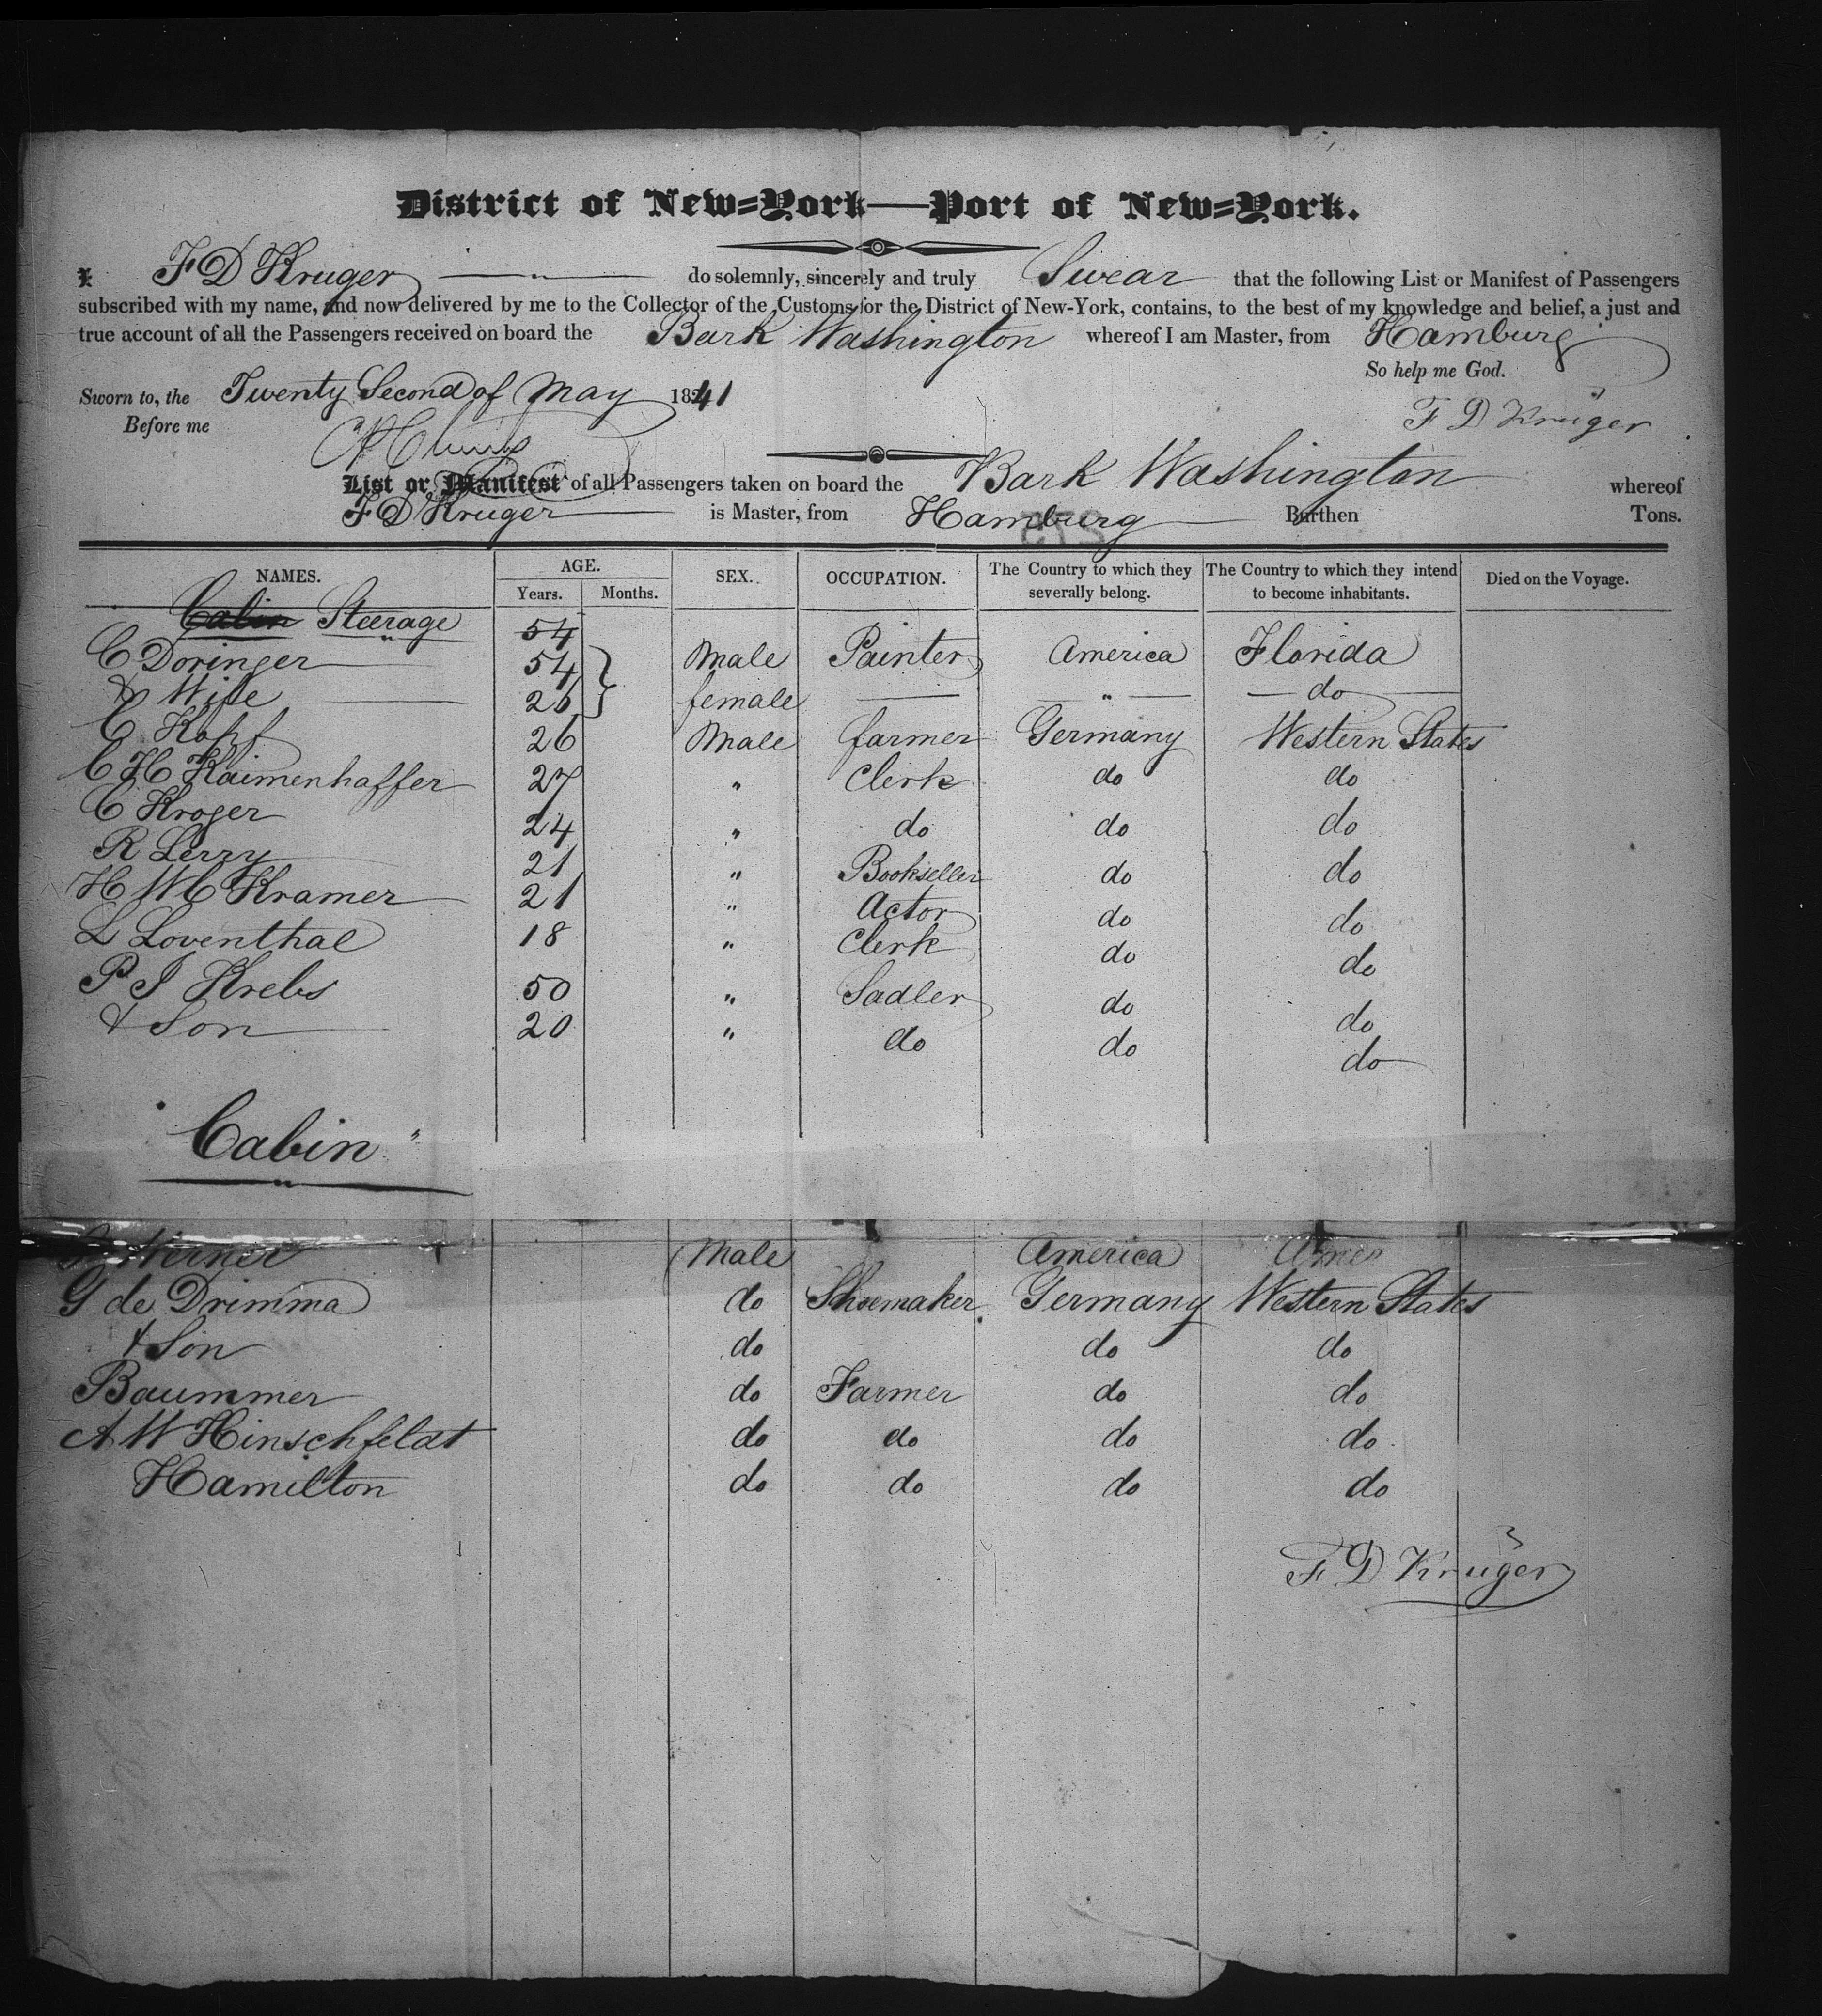 District of New-York—Port of New-York.
I F D Kruger do solemnly, sincerely and truly Swear that the following List or Manifest of Passengers
subscribed with my name, and now delivered by me to the Collector of the Customs for the District of New-York, contains, to the best of my knowledge and belief, a just and
true account of all the Passengers received on board the Bark Washington whereof I am Master, from Hamburg
So help me God.
Sworn to, the Twenty Second of May 1841
Before me
F D Krüger
List or Manifest of all Passengers taken on board the Bark Washington whereof
F D Kruger is Master, from Hamburg Burthen Tons.
NAMES. AGE. Years. Months. SEX. OCCUPATION. The Country to which they severally belong. The Country to which they intend to become inhabitants. Died on the Voyage.
Cabin Steerage 54
C Doringer 54 Male Painter America Florida
& Wife 26 female " do
C Kopf 26 Male farmer Germany Western States
C H Kaimenhaffer 27 " Clerk do do
C Kroger 24 " do do do
R Lerry 21 " Bookseller do do
H W C Kramer 21 " Actor do do
L Loventhal 18 " Clerk do do
P J Krebs 50 " Sadler do do
& Son 20 " do do do
Cabin
Werner Male America
G de Drimma do Shoemaker Germany Western States
& Son do do do
Baummer do Farmer do do
A W Hinschfeldt do do do do
Hamilton do do do do
F D Krüger